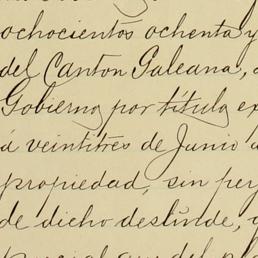 ochocientos ochenta y
del Canton Galeana,
Gobierno por título ex
á veintitres de Junio
propiedad, sin per
de dicho deslinde,